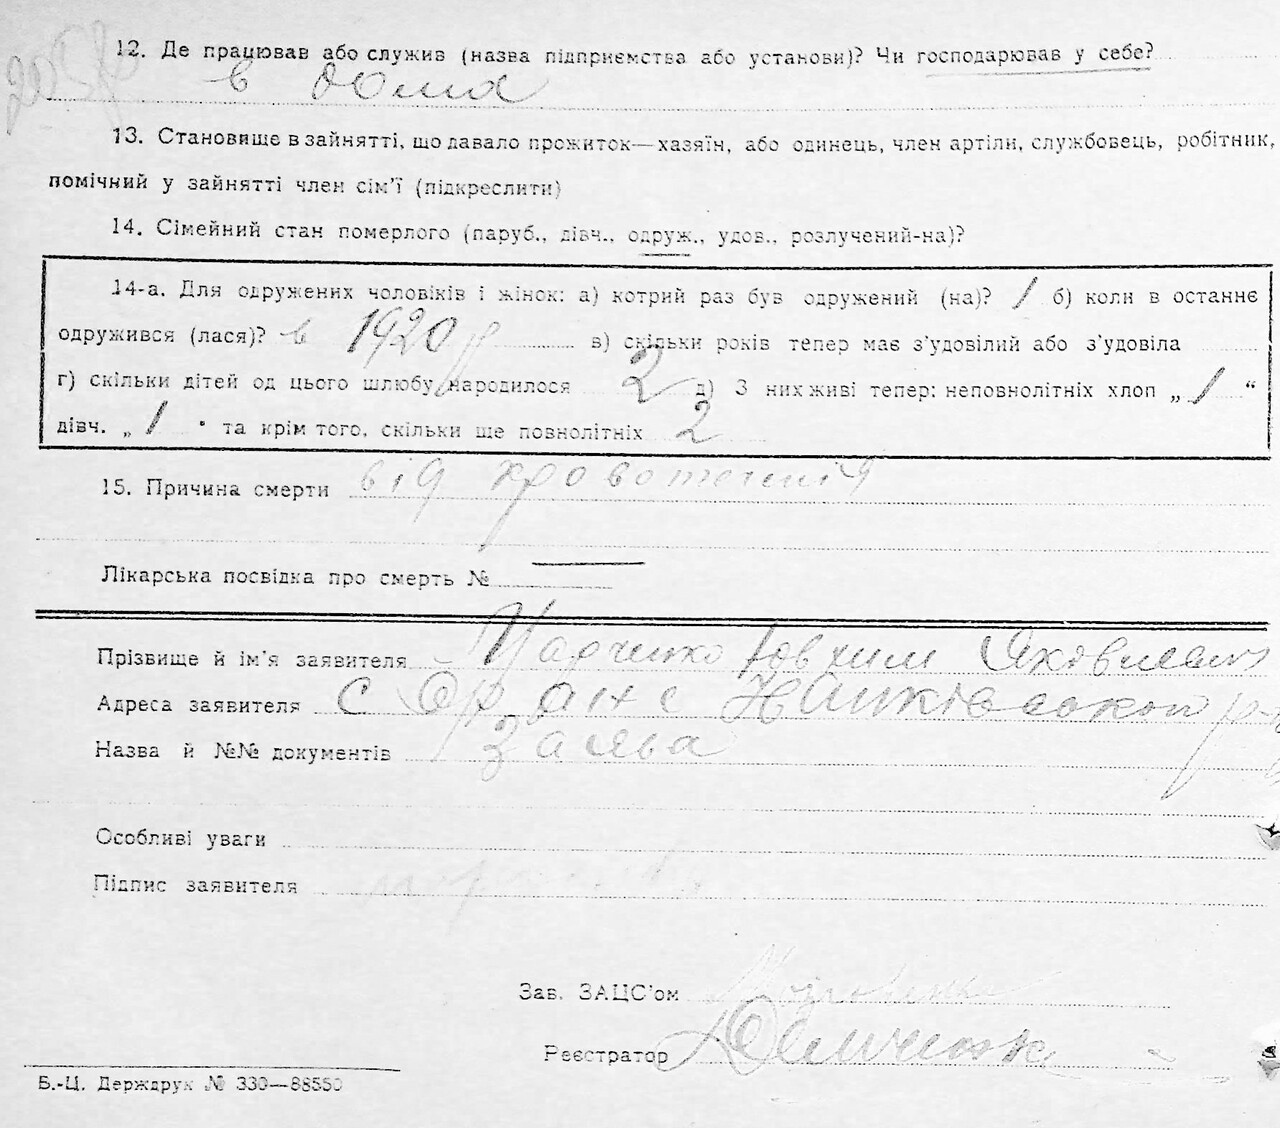 12. Де працював або служив (назва підприємства або установи)? Чи господарював у себе?
в дома
13. Становище в зайнятті, що давало прожиток—хазяїн, або одинець, член артіли, службовець, робітник,
помічний у зайнятті член сім'ї (підкреслити)
14. Сімейний стан померлого (паруб., дівч., одруж., удов., розлучений-на)?
14-а. Для одружених чоловіків і жінок: а) котрий раз був одружений (на)? 1 б) коли в останнє
одружився (лася)? в 1920 р в) скільки років тепер має з'удовілий або з'удовіла
г) скільки дітей од цього шлюбу народилося 2 д) З них живі тепер: неповнолітніх хлоп „ 1 “
дівч. „ 1 " та крім того, скільки ще повнолітніх 2
15. Причина смерти від кровотеченія
Лікарська посвідка про смерть № —
Прізвище й ім'я заявителя ХарченкоЮвхим Яковлевич
Адреса заявителя с р-
Назва й №№ документів Заява
Особливі уваги
Підпис заявителя
Зав. ЗАЦС'ом
Реєстратор
Б.-Ц. Держдрук № 330—88550